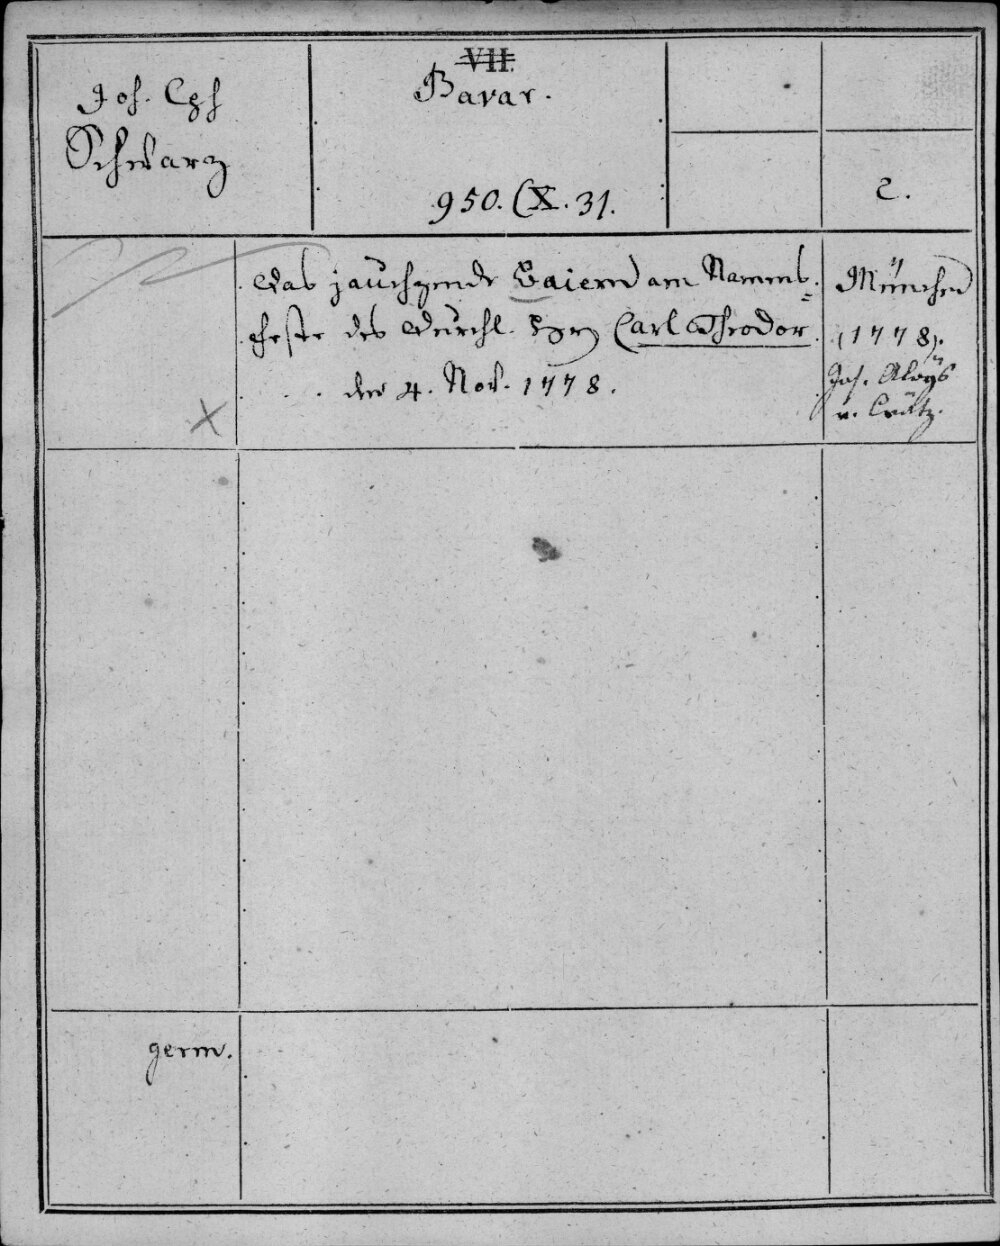 Joh. Cph
Schwarz
VII.
Bavar.
950. CX. 31.
2.
Das jauchzende Baiern am Namens=
feste des Durchl. Carl Theodor
den 4. Nov. 1778.
München
(1778).
Joh. Aloys
v. Crätz.
germ.